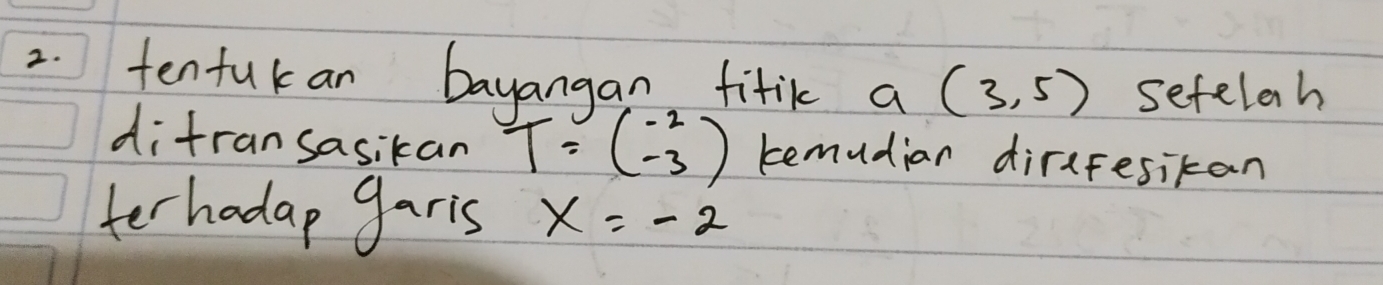 2. tentukan bayangan titik a (3,5) setelah
ditransasikan T = (-2 -3) kemudian dirефesikan
terhadap garis x = -2